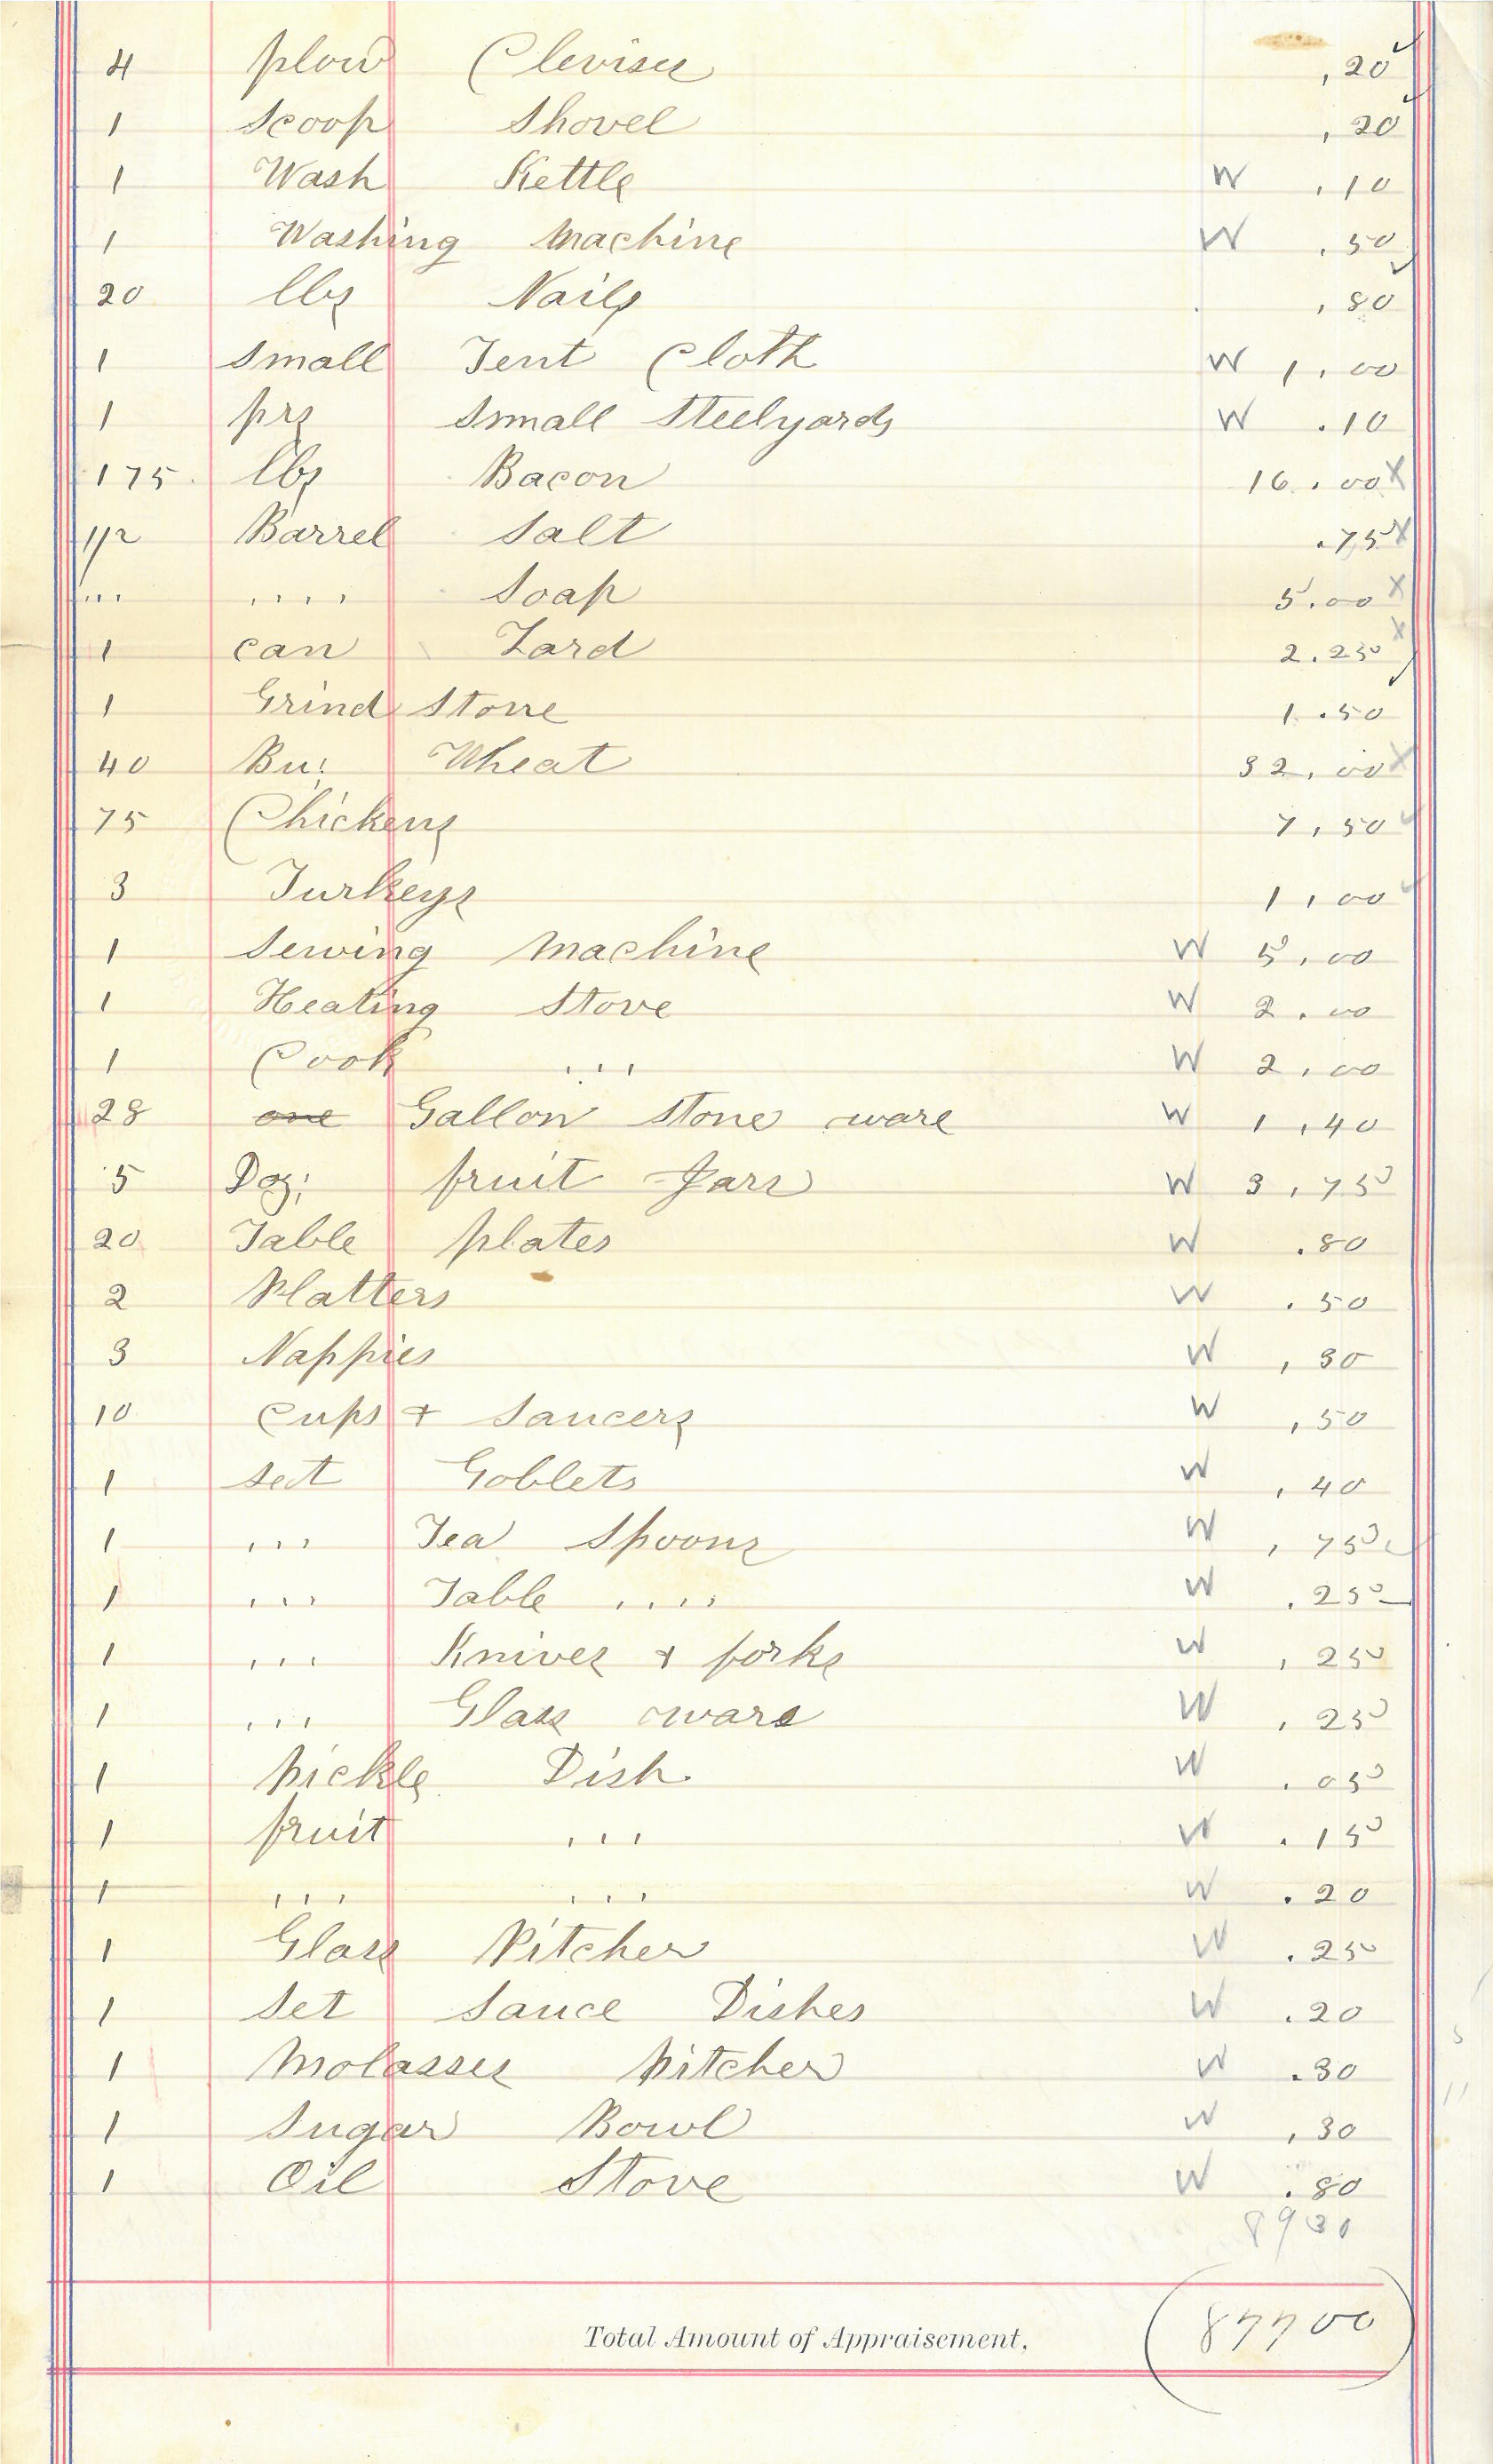 4 plow Clevises .20
1 Scoop Shovel .20
1 Wash Kettle W .10
1 Washing Machine W .50
20 lbs Nails .80
1 Small Tent Cloth W 1.00
1 prs Small Steelyards W .10
175 lbs Bacon 16.00 X
1/2 Barrel Salt .75 X
"" "" Soap 5.00 X
1 can Lard 2.25 X
1 Grind Stone 1.50
40 Bu: Wheat 32.00 X
75 Chickens 7.50
3 Turkeys 1.00
1 Sewing Machine W 5.00
1 Heating Stove W 2.00
1 Cook "" W 2.00
28 one Gallon Stone ware W 1.40
5 Doz: fruit Jars W 3.75
20 Table plates W .80
2 Platters W .50
3 Nappies W .30
10 Cups + Saucers W .50
1 Set Goblets W .40
1 "" Tea Spoons W .75
1 "" Table "" W .25
1 "" Knives + forks W .25
1 "" Glass ware W .25
1 pickle Dish W .05
1 fruit "" W .15
1 "" "" W .20
1 Glass Pitcher W .25
1 Set Sauce Dishes W .20
1 Molasses pitcher W .30
1 Sugar Bowl W .30
1 Oil Stove W .80
8930
Total Amount of Appraisement, 877 00